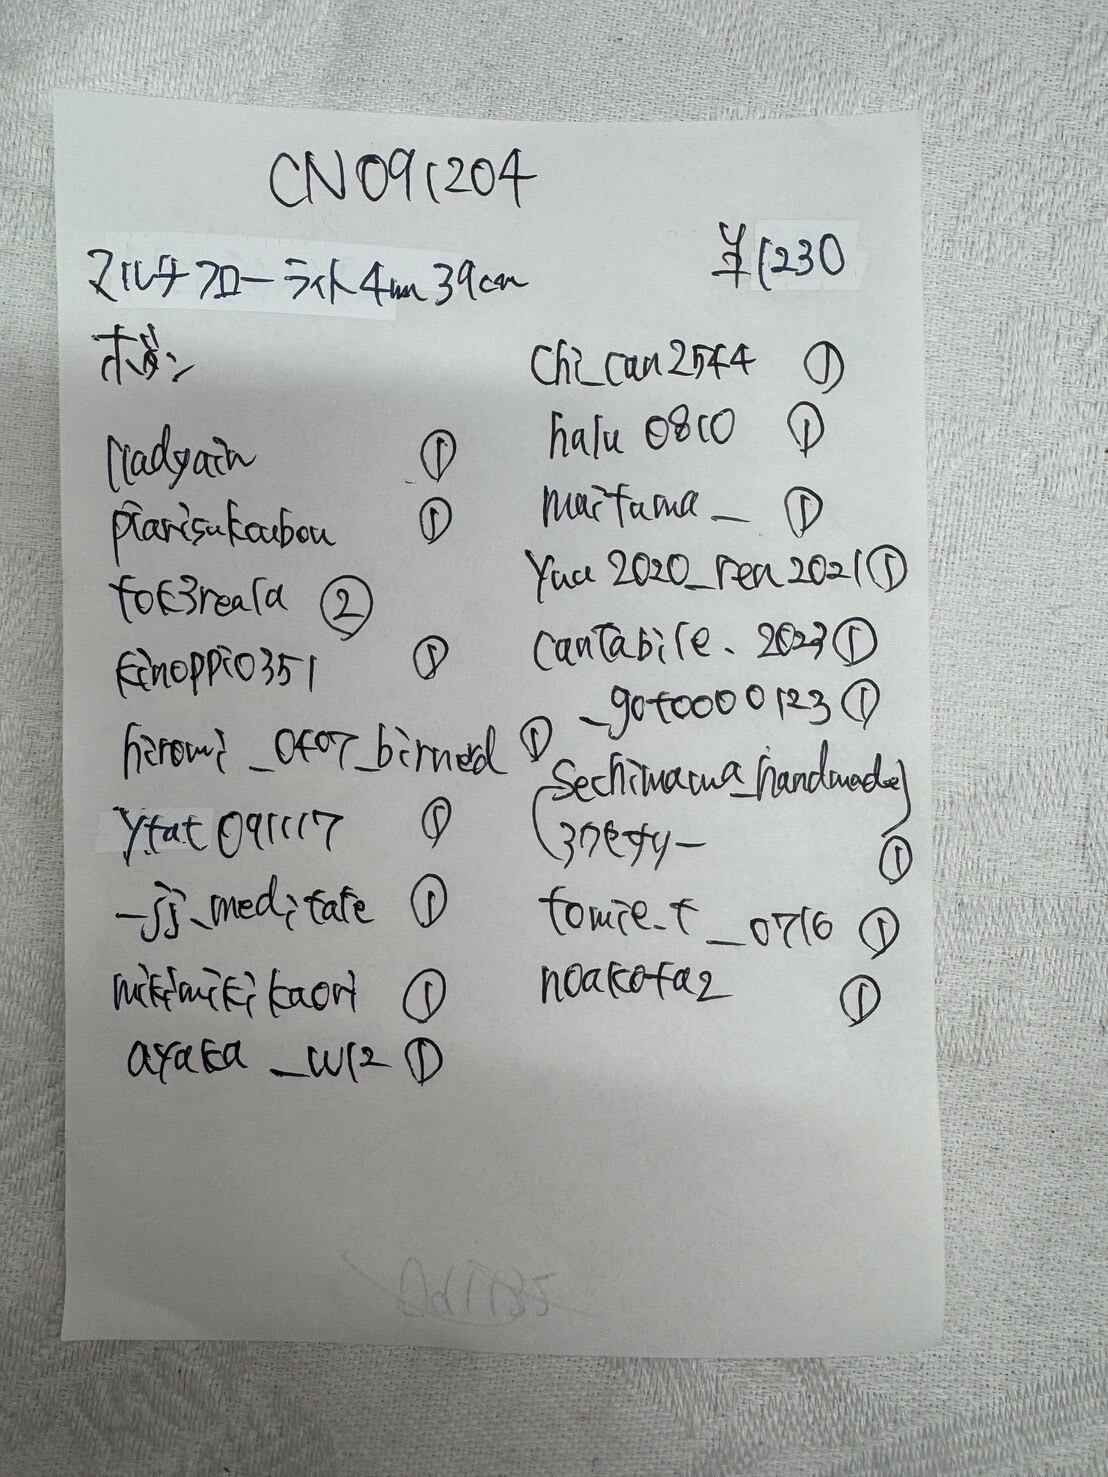 CN091204
マルチフローライト4mm39cm
¥1230
ボタン
nadyain ①
piarisukoubou ①
tok3reala ②
kinoppio351 ①
hiromi_0407_birned ①
ytat091117 ①
_jj_meditate ①
mikimikikaori ①
ayaka_w12 ①
chi_can2544 ①
halu0810 ①
maitama_ ①
yuu2020_ren2021 ①
cantabile.2023 ①
_gotoooo0123 ①
(sechimama_handmade)
①
tomie_t_0716 ①
noakota2 ①